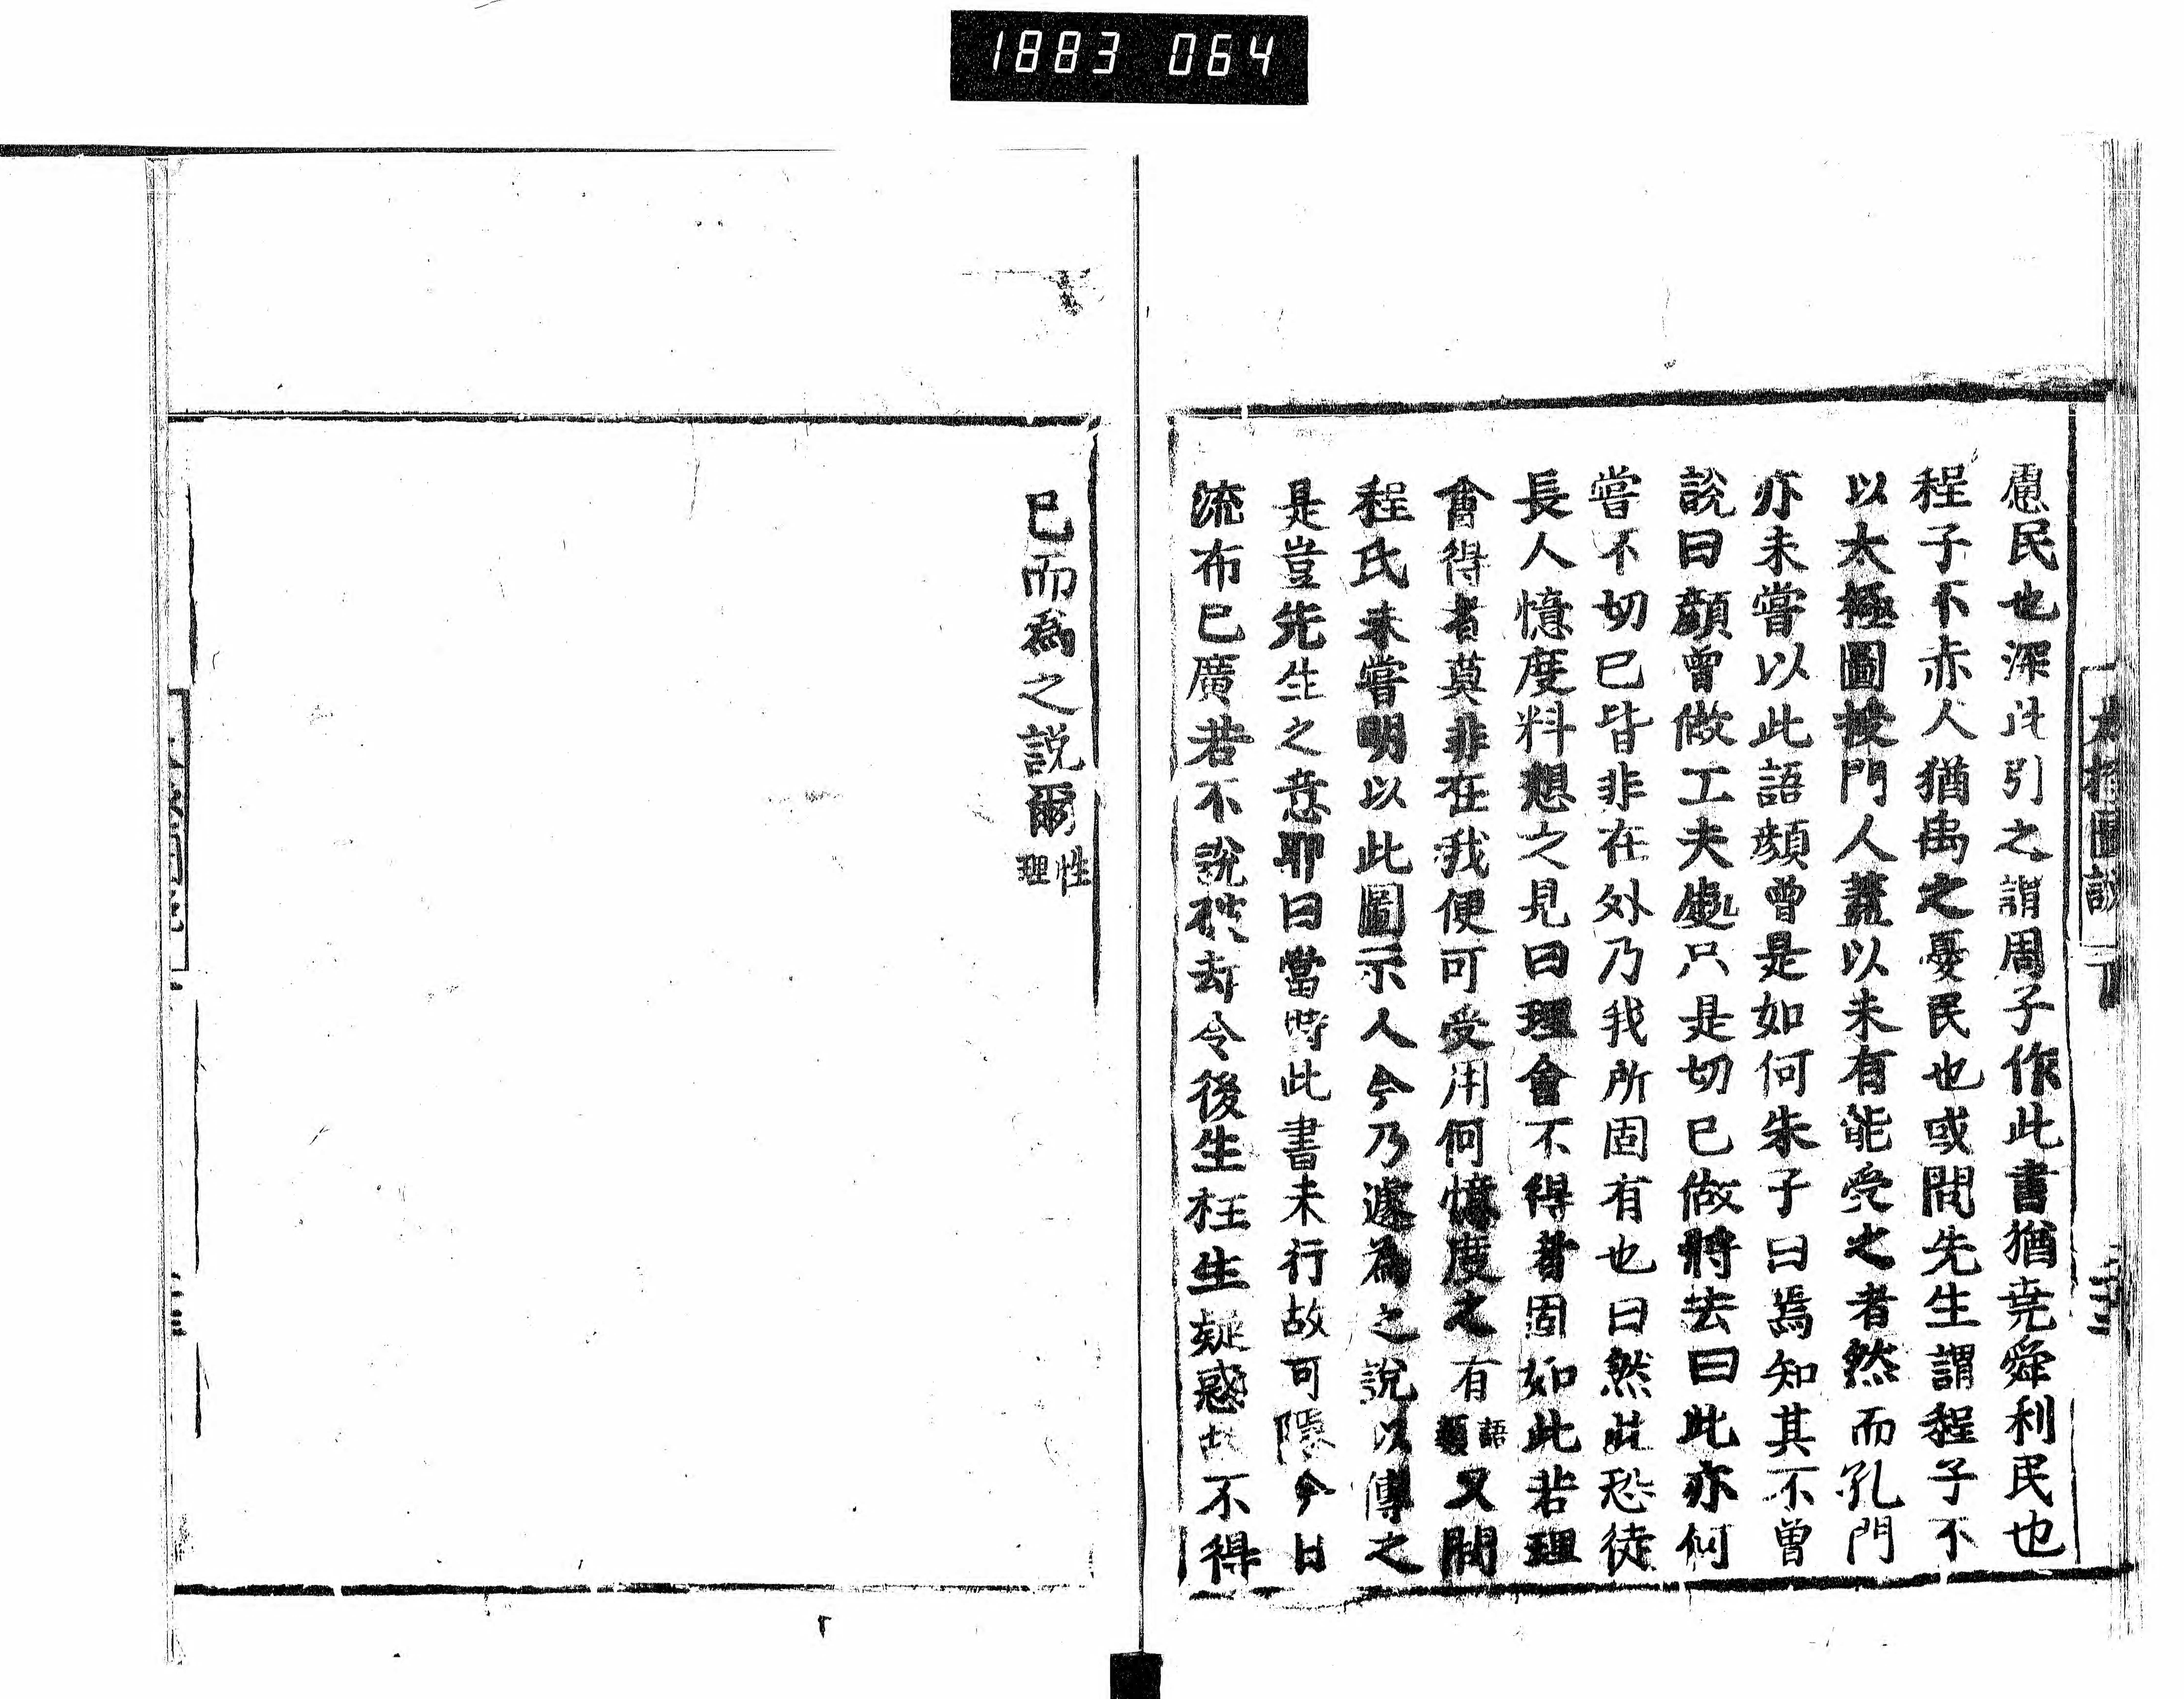 1883 064
太極圖說
慮民也深此引之謂周子作此書猶堯舜利民也
程子不赤人猶禹之憂民也或問先生謂程子不
以太極圖授門人蓋以未有能受之者然而孔門
亦未嘗以此語顏曾是如何朱子曰焉知其不曾
說曰顏曾做工夫處只是切已做將去曰此亦何
嘗不切已皆非在外乃我所固有也曰然此恐徒
長人憶度料想之見曰理會不得者固如此若理
會得者莫非在我便可受用何憶度之有
語類
又問
程氏未嘗明以此圖示人今乃遽為之說以傳之
是豈先生之意耶曰當時此書未行故可隱今日
流布已廣若不說破却令後生枉生疑惑故不得
已而為之說爾
性理